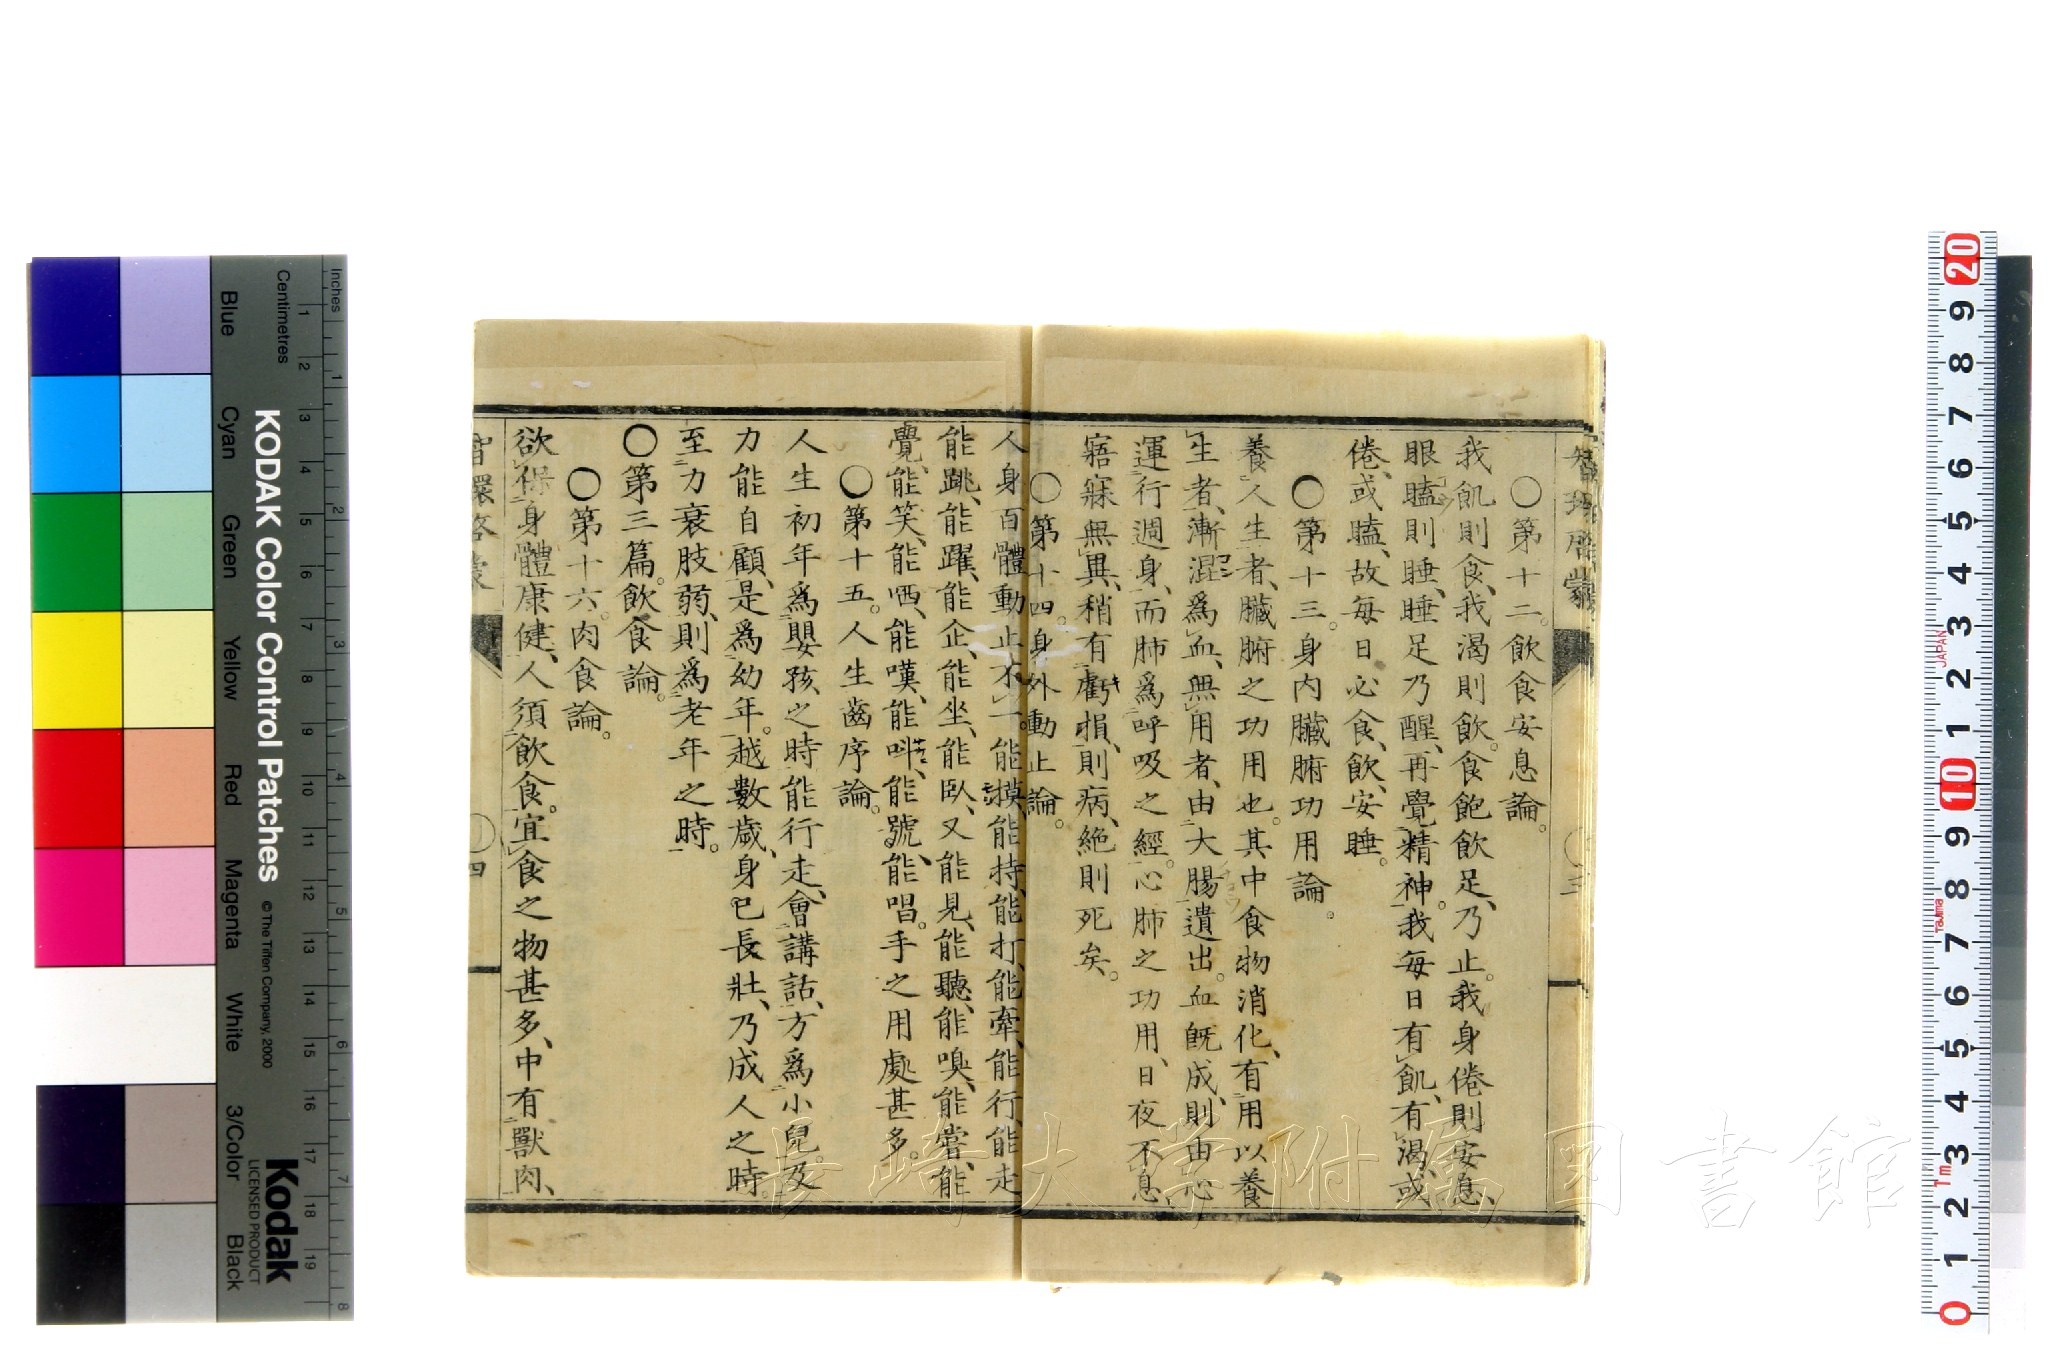 〇第十二。飲食安息論。
我飢則食、我渴則飲。食飽飲足、乃止。我身倦則安息、
眼瞌則睡、睡足乃醒、再覺精神。我每日有飢、有渴、或
倦、或瞌、故每日必食、飲、安睡。
〇第十三。身內臟腑功用論。
養人生者、臟腑之功用也。其中食物消化、有用以養
生者、漸混爲血、無用者、由大腸遺出。血既成、則由心
運行週身、而肺爲呼吸之經。心肺之功用、日夜不息、
寤寐無異、稍有虧損、則病、絶則死矣。
〇第十四。身外動止論。
人身百體動止不一。能摸、能持、能打、能牽、能行、能走
能跳、能躍、能企、能坐、能臥、又能見、能聽、能嗅、能嘗、能
覺、能笑、能哂、能嘆、能呌、能號、能唱。手之用處甚多。
〇第十五。人生齒序論。
人生初年爲嬰孩之時、能行走、會講話、方爲小兒。及
力能自顧、是爲幼年。越數歲、身已長壯、乃成人之時。
至力衰肢弱、則爲老年之時。
〇第三篇。飲食論。
〇第十六。肉食論。
欲保身體康健、人須飲食。宜食之物甚多、中有獸肉、
四
長崎大学附属図書館
KODAK Color Control Patches
© The Tiffen Company, 2000
Kodak
LICENSED PRODUCT
Inches
Centimetres
Blue
Cyan
Green
Yellow
Red
Magenta
White
3/Color
Black
1 2 3 4 5 6 7 8 9 10 11 12 13 14 15 16 17 18 19
1 2 3 4 5 6 7 8
20 9 8 7 6 5 4 3 2 1 10 9 8 7 6 5 4 3 2 1 0
JAPAN
Tajima